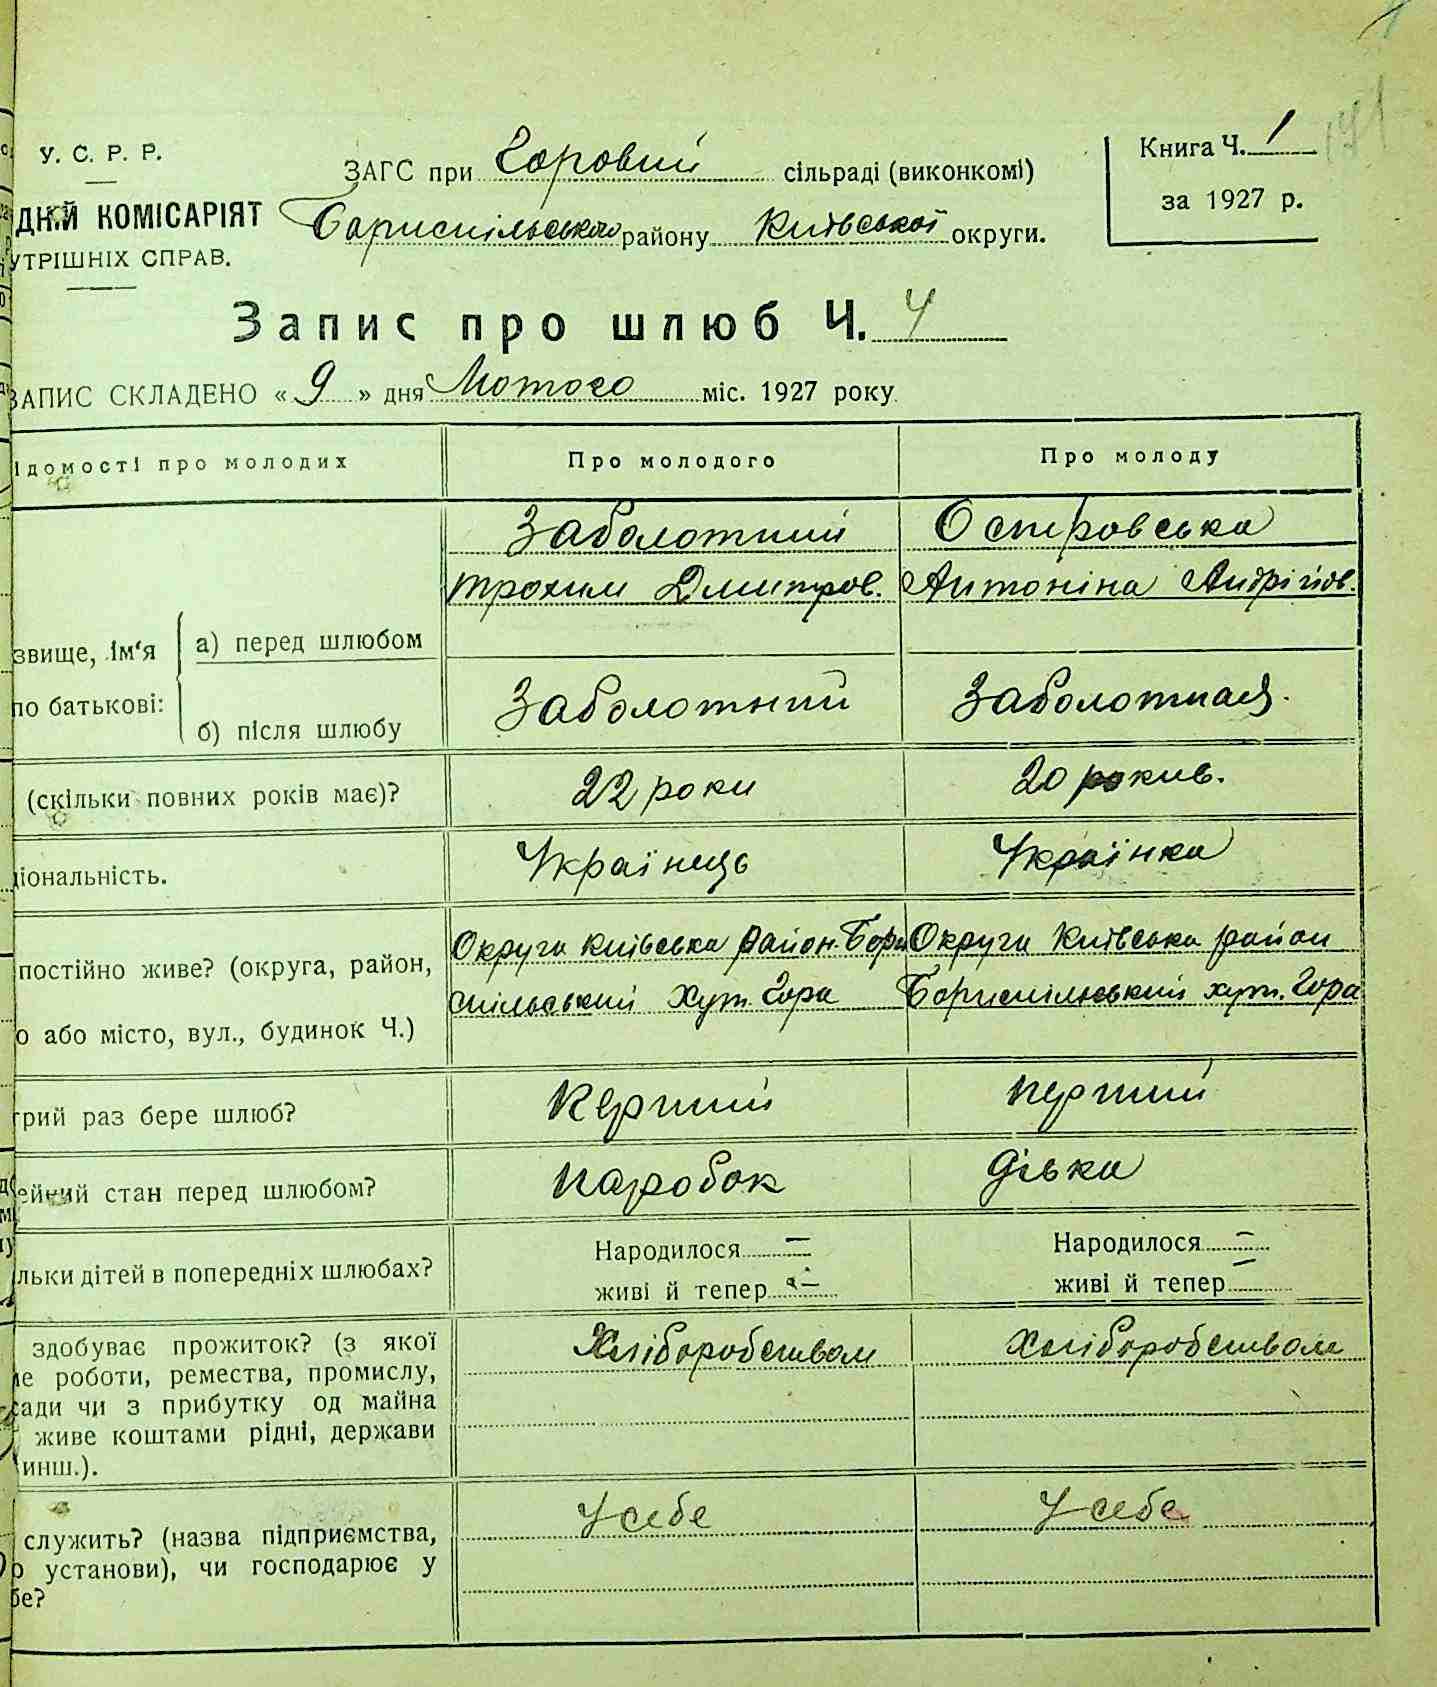 У. С. Р. Р.
ЗАГС при Горовий сільраді (виконкомі)
Книга Ч. 1
за 1927 р.
ДНИЙ КОМІСАРІЯТ
Бориспільського району Київської округи.
УТРІШНІХ СПРАВ.
Запис про шлюб Ч. 4
ЗАПИС СКЛАДЕНО « 9 » дня Лютого міс. 1927 року
ідомості про молодих
Про молодого
Про молоду
звище, ім'я
по батькові:
а) перед шлюбом
Заболотний
Трохим Дмитров.
Островська
Антоніна Андріїів.
б) після шлюбу
Заболотний
Заболотная.
(скільки повних років має)?
22 роки
20 рокив.
ціональність.
Українець
Українка
постійно живе? (округа, район,
о або місто, вул., будинок Ч.)
Округа Київська район. Бори
спільський Хут. Гора
Округа Київська район
Бориспільський хут. Гора
трий раз бере шлюб?
перший
перший
ейний стан перед шлюбом?
паробок
дівка
льки дітей в попередніх шлюбах?
Народилося —
живі й тепер —
Народилося —
живі й тепер —
здобуває прожиток? (з якої
ле роботи, ремества, промислу,
сади чи з прибутку од майна
живе коштами рідні, держави
инш.).
Хліборобством
Хліборобством
служить? (назва підприємства,
о установи), чи господарює у
бе?
У себе
У себе